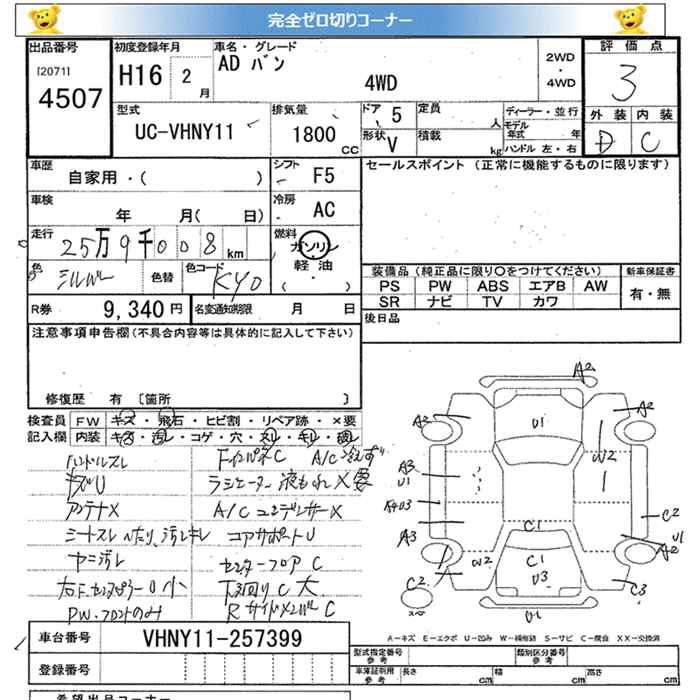 完全ゼロ切りコーナー
出品番号 初度登録年月 車名・グレード 2WD・4WD 評価点
[2071] 4507 H16 2月 AD バン 4WD 3
型式 排気量 ドア 5 定員 人 ディーラー・並行 外装 内装
UC-VHNY11 1800 CC 形状 V 積載 kg モデル年式 年 D C
ハンドル 左・右
車歴 シフト セールスポイント (正常に機能するものに限ります)
自家用・( ) F5
車検 年 月( 日) 冷房 AC
走行 25万9千008 km 燃料 ガソリン
色 シルバー 色替 色コード KY0 軽油 ( ・ )
装備品 (純正品に限り〇をつけてください) 新車保証書
PS PW ABS エアB AW 有・無
SR ナビ TV カワ
R券 9,340円 名変通知期限 月 日 後日品
注意事項申告欄 (不具合内容等は具体的に記入して下さい)
修復歴 有 [箇所 ]
検査員 FW キズ・飛石・ヒビ割・リペア跡・×要
記入欄 内装 キズ・汚レ・コゲ・穴・スリ・キレ・破レ
ハンドルスレ FインパネC A/C冷えず
キズU ラジエーター液もれ×要
アンテナ× A/Cコンデンサー×
シートスレ へたり、汚レキレ コアサポートU
ヤニ汚レ センターフロア C
右F.センタピラーU 小 下回りC 大
PW.フロントのみ RサイドメンバーC
A2
A2 U1 A2
A3 U1 W2
A3 C2
C1 U1 A2
W2 C1 U3
C2 C3
U1
A-キズ E-エクボ U-凹み W-補修跡 S-サビ C-腐食 XX-交換済
車台番号 VHNY11-257399
型式指定番号 参考 類別区分番号 参考
登録番号
車庫証明用 参考 長さ cm 幅 cm 高さ cm
希望出品コーナー